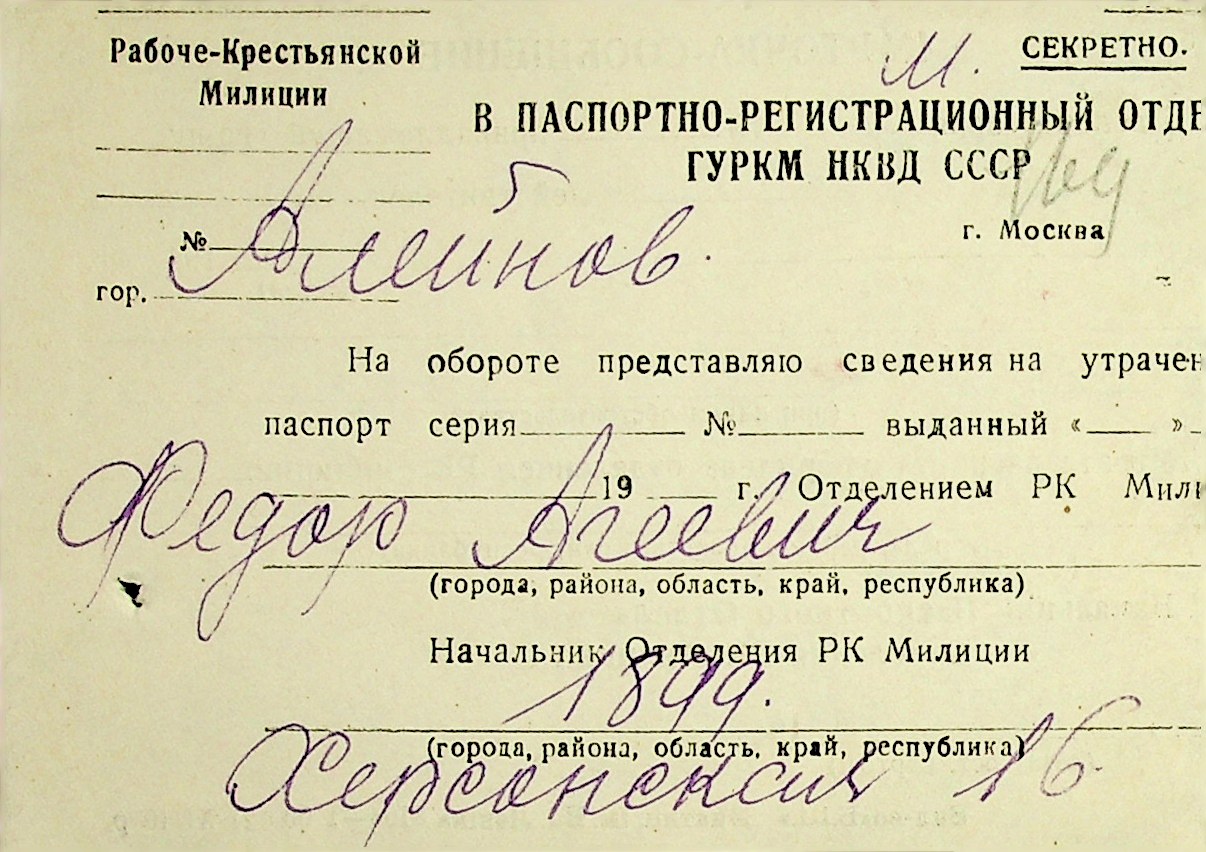 Рабоче-Крестьянской
Милиции
М.
СЕКРЕТНО.
В ПАСПОРТНО-РЕГИСТРАЦИОННЫЙ ОТДЕ
ГУРКМ НКВД СССР
г. Москва
№
Алейнов.
гор.
На обороте представляю сведения на утрачен
паспорт серия № выданный « »
19 г. Отделением РК Мили
Федор Агеевич
(города, района, область, край, республика)
Начальник Отделения РК Милиции
1899.
(города, района, область, край, республика)
Херсонская 16